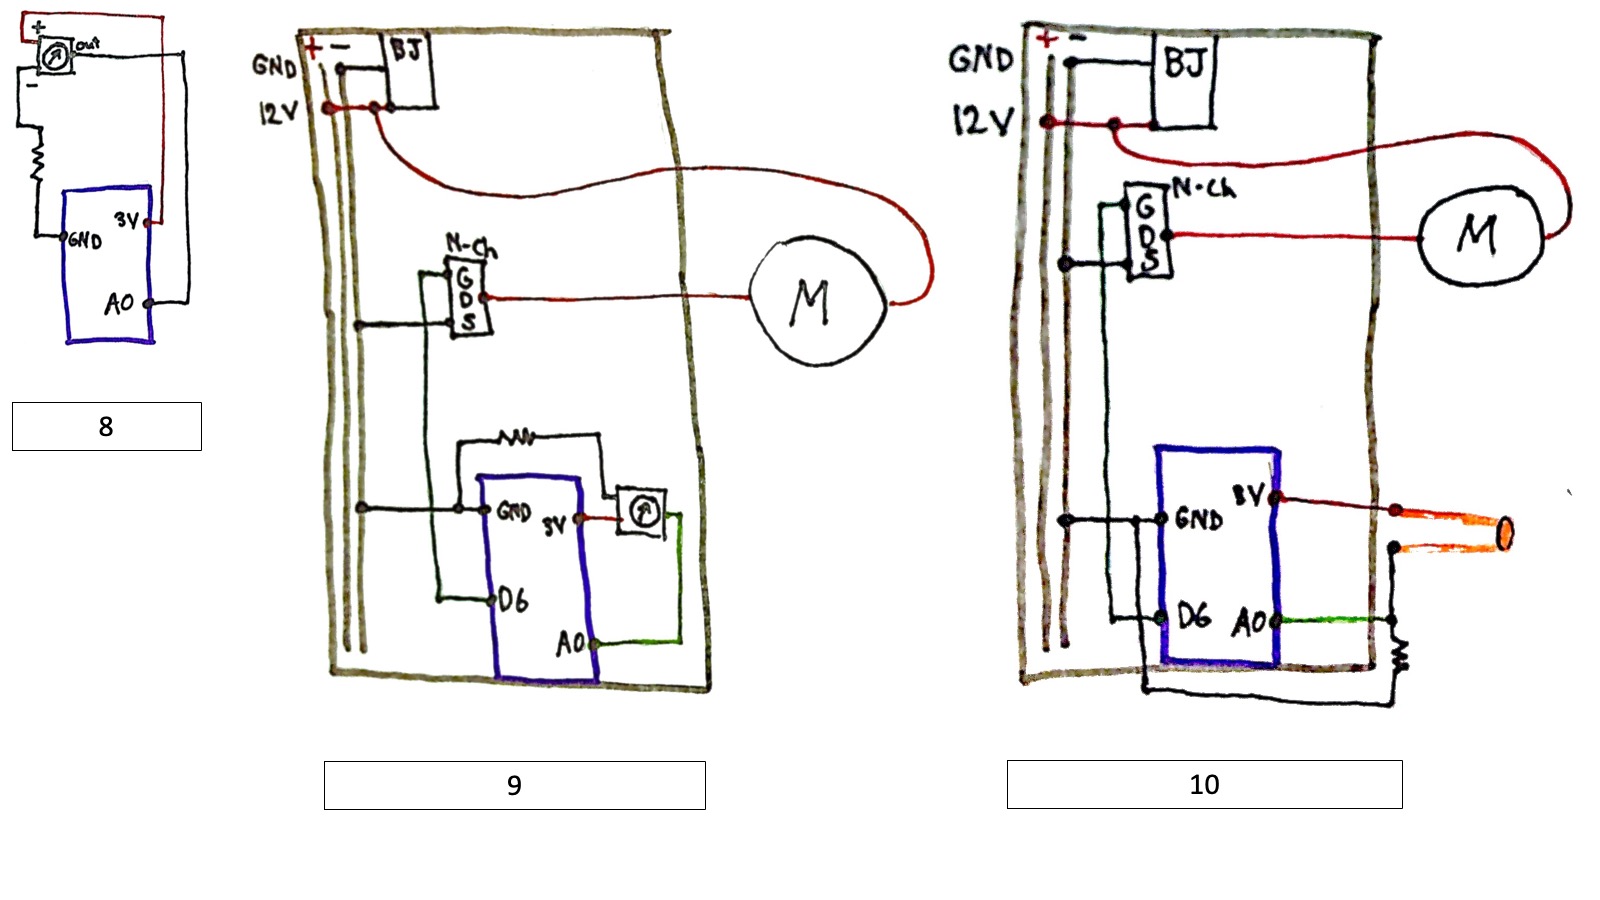 +
out
-
3V
GND
A0
8
+ -
BJ
GND
12V
N-Ch
G
D
S
M
GND
3V
D6
A0
9
+ -
GND
BJ
12V
N-Ch
G
D
S
M
3V
GND
D6
A0
10